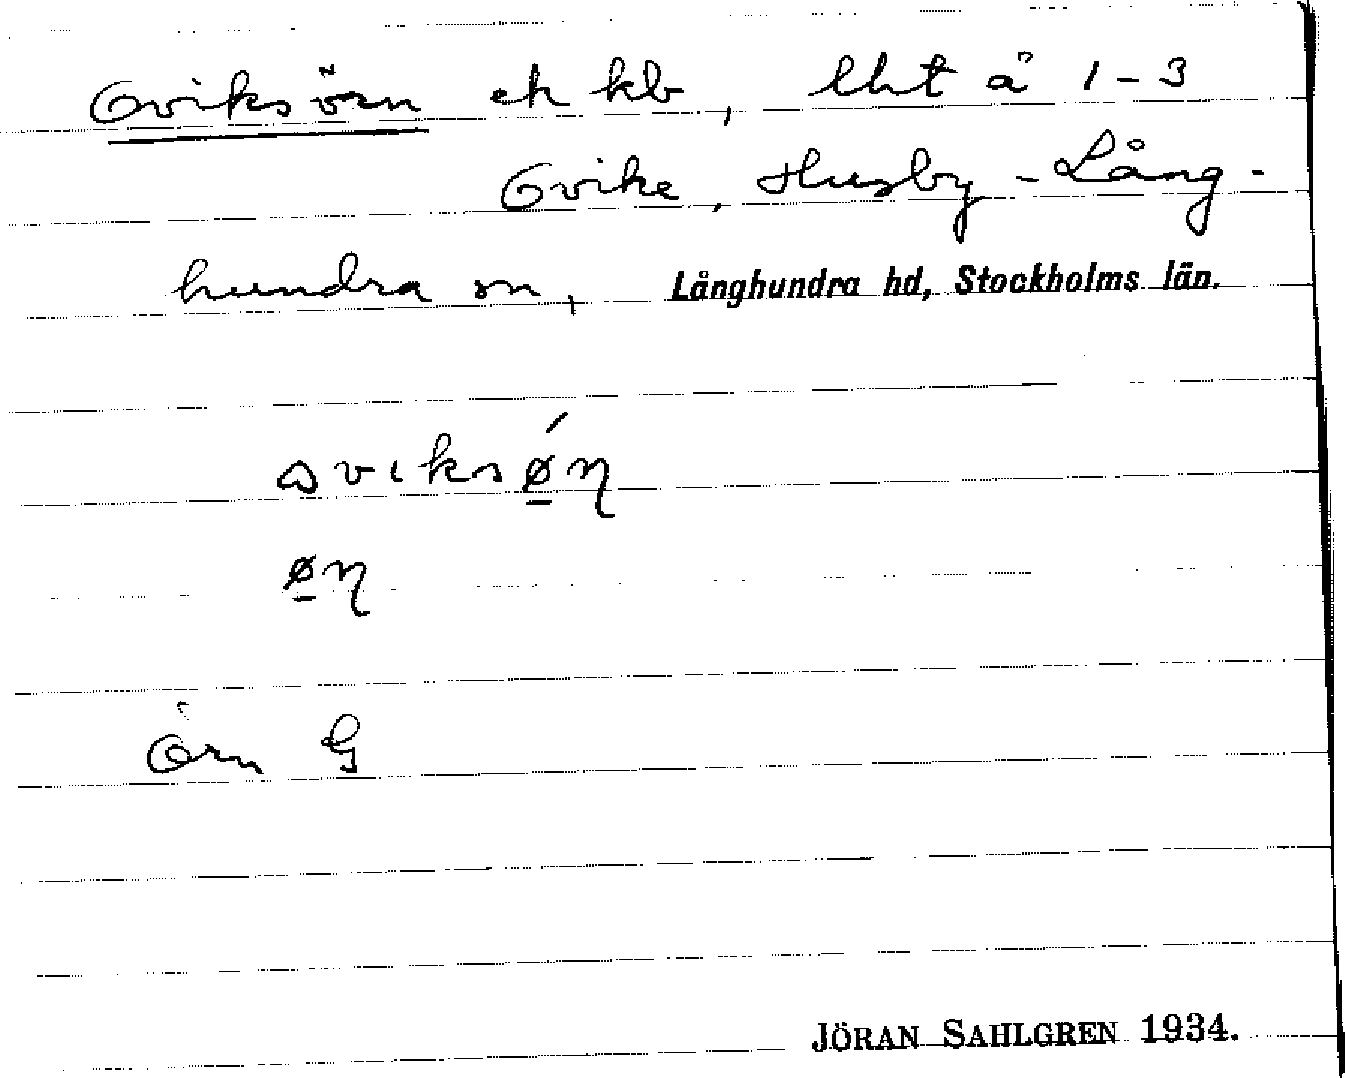 Oviksörn ek kb, lht å 1-3
Ovike, Husby-Lång-
hundra sn, Långhundra hd, Stockholms län.
Örn G
JÖRAN SAHLGREN 1934.